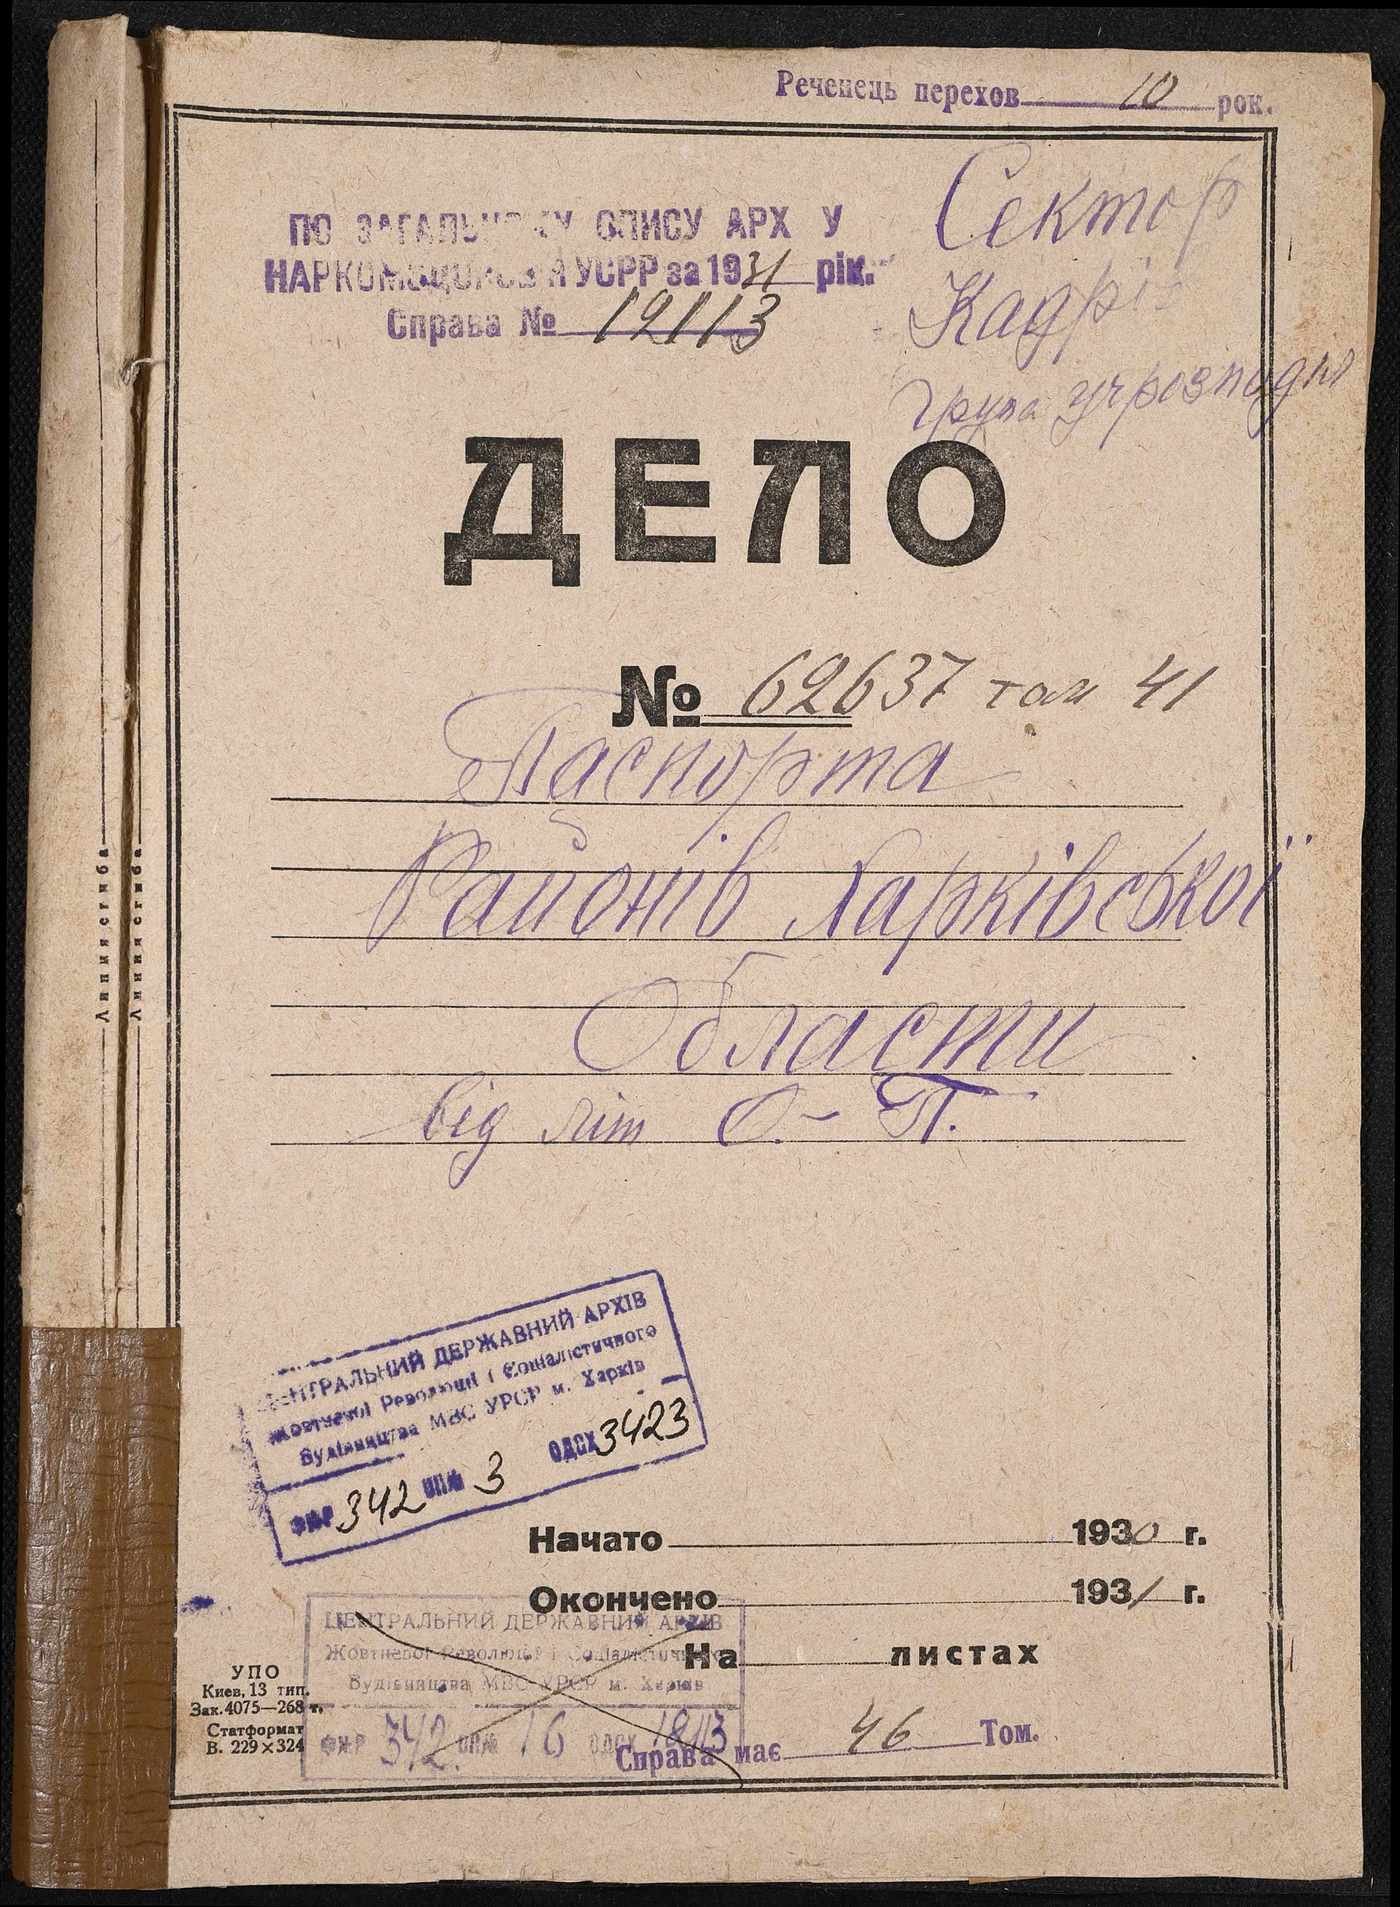 Реченець перехов 10 рок.
ПО ЗАГАЛЬНОМУ ОПИСУ АРХ У
УСРР за 1931 рік.
Справа № 12113
Сектор
Кадрів
група учрозподіл
ДЕЛО
№ 62637 том 41
Паспорта
Районів Харківської
Области
від літ О.- П.
Линия сгиба
Линия сгиба
ЦЕНТРАЛЬНИЙ ДЕРЖАВНИЙ АРХІВ
Жовтневої Революції і Соціалістичного
Будівництва МВС УРСР м. Харків
ФНР 342 ОП№ 3 ОДСХ 3423
Начато 1930 г.
Окончено 1931 г.
ЦЕНТРАЛЬНИЙ ДЕРЖАВНИЙ АРХІВ
Жовтневої Революції і Соціалістичного
Будівництва МВС УРСР м. Харків
На листах
ФНР 342. ОП№ 16 ОДСХ 18113
Справа має 46 Том.
УПО
Киев, 13 тип.
Зак. 4075—268 т.
Статформат
В. 229×324